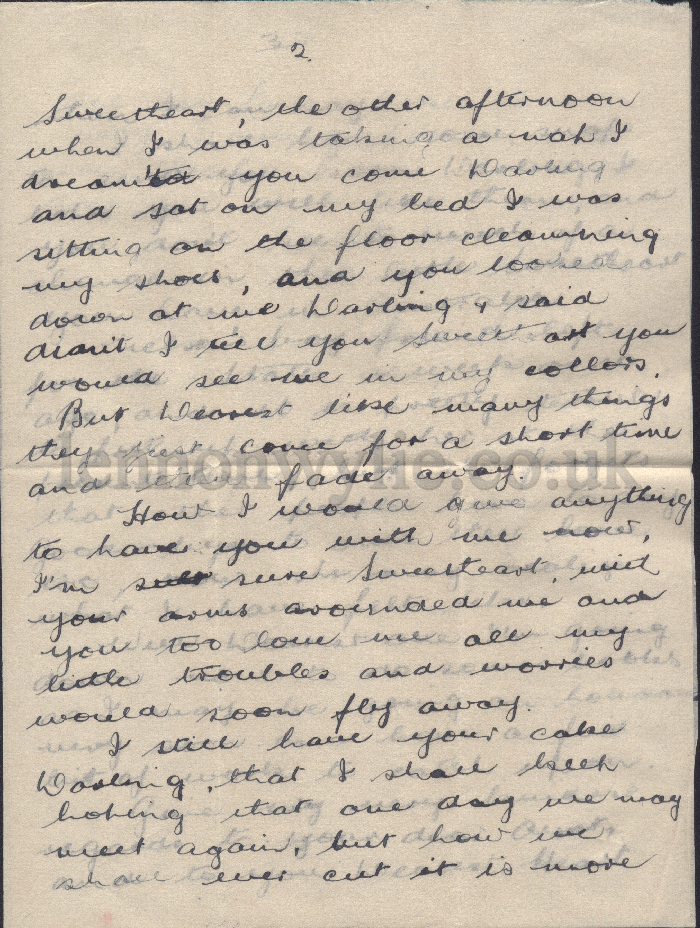 2.
Sweetheart, the other afternoon
when I was taking a nap I
dream'ed you come Darling
and sat on my bed I was
sitting on the floor cleanning
my shoes, and you looked
down at me Darling & said
didn't I tell you Sweet art you
would see me in my collors.
But Dearest like many things
they just come for a short time
and then fade away.
How I would give anything
to have you with me now,
I'm sure Sweetheart, with
your arms arounded me and
you too love me all my
little troubles and worries
would soon fly away.
I still have your cake
Darling, that I shall keep
hoping that one day we may
meet again, but how we
shall ever cut it is more
lennonwylie.co.uk